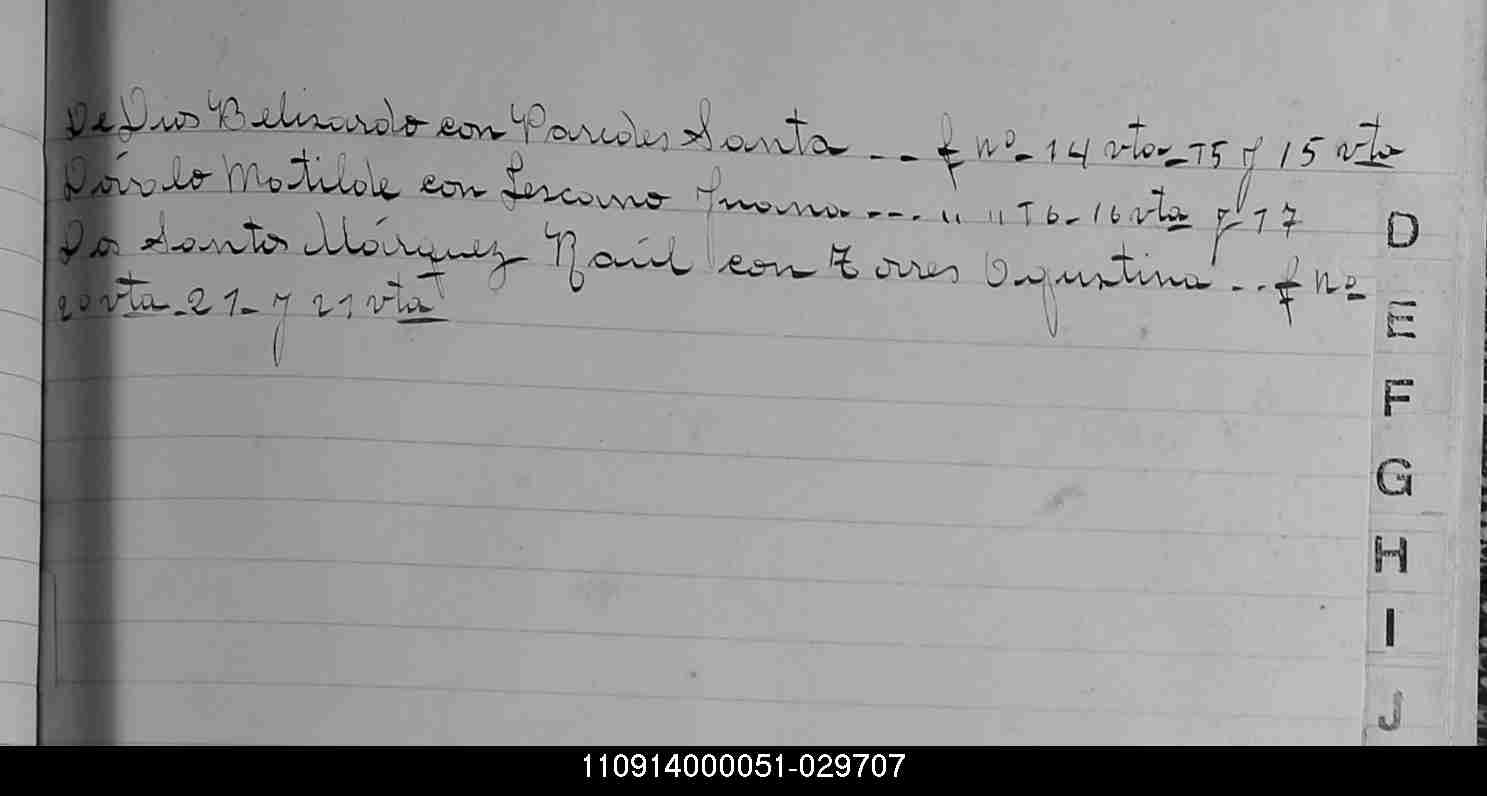 De Dios Belizardo con Paredes Santa -- f nº- 14 vto - 15 y 15 vta
Dávalo Matilde con Lescano Juana --- " " 16- 16 vta y 17
Da Santos Márquez Raúl con Torres Agustina -- f nº
20 vta - 21 - y 21 vta
D
E
F
G
H
I
J
110914000051-029707